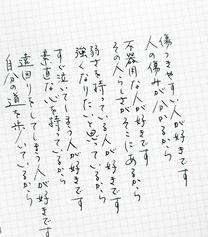 傷つきやすい人が好きです
人の傷みが分かるから
不器用な人が好きです
その人らしさがそこにあるから
弱さを持っている人が好きです
強くなりたいと思っているから
すぐ泣いてしまう人が好きです
素直な心を持っているから
遠回りをしてしまう人が好きです
自分の道を歩いているから